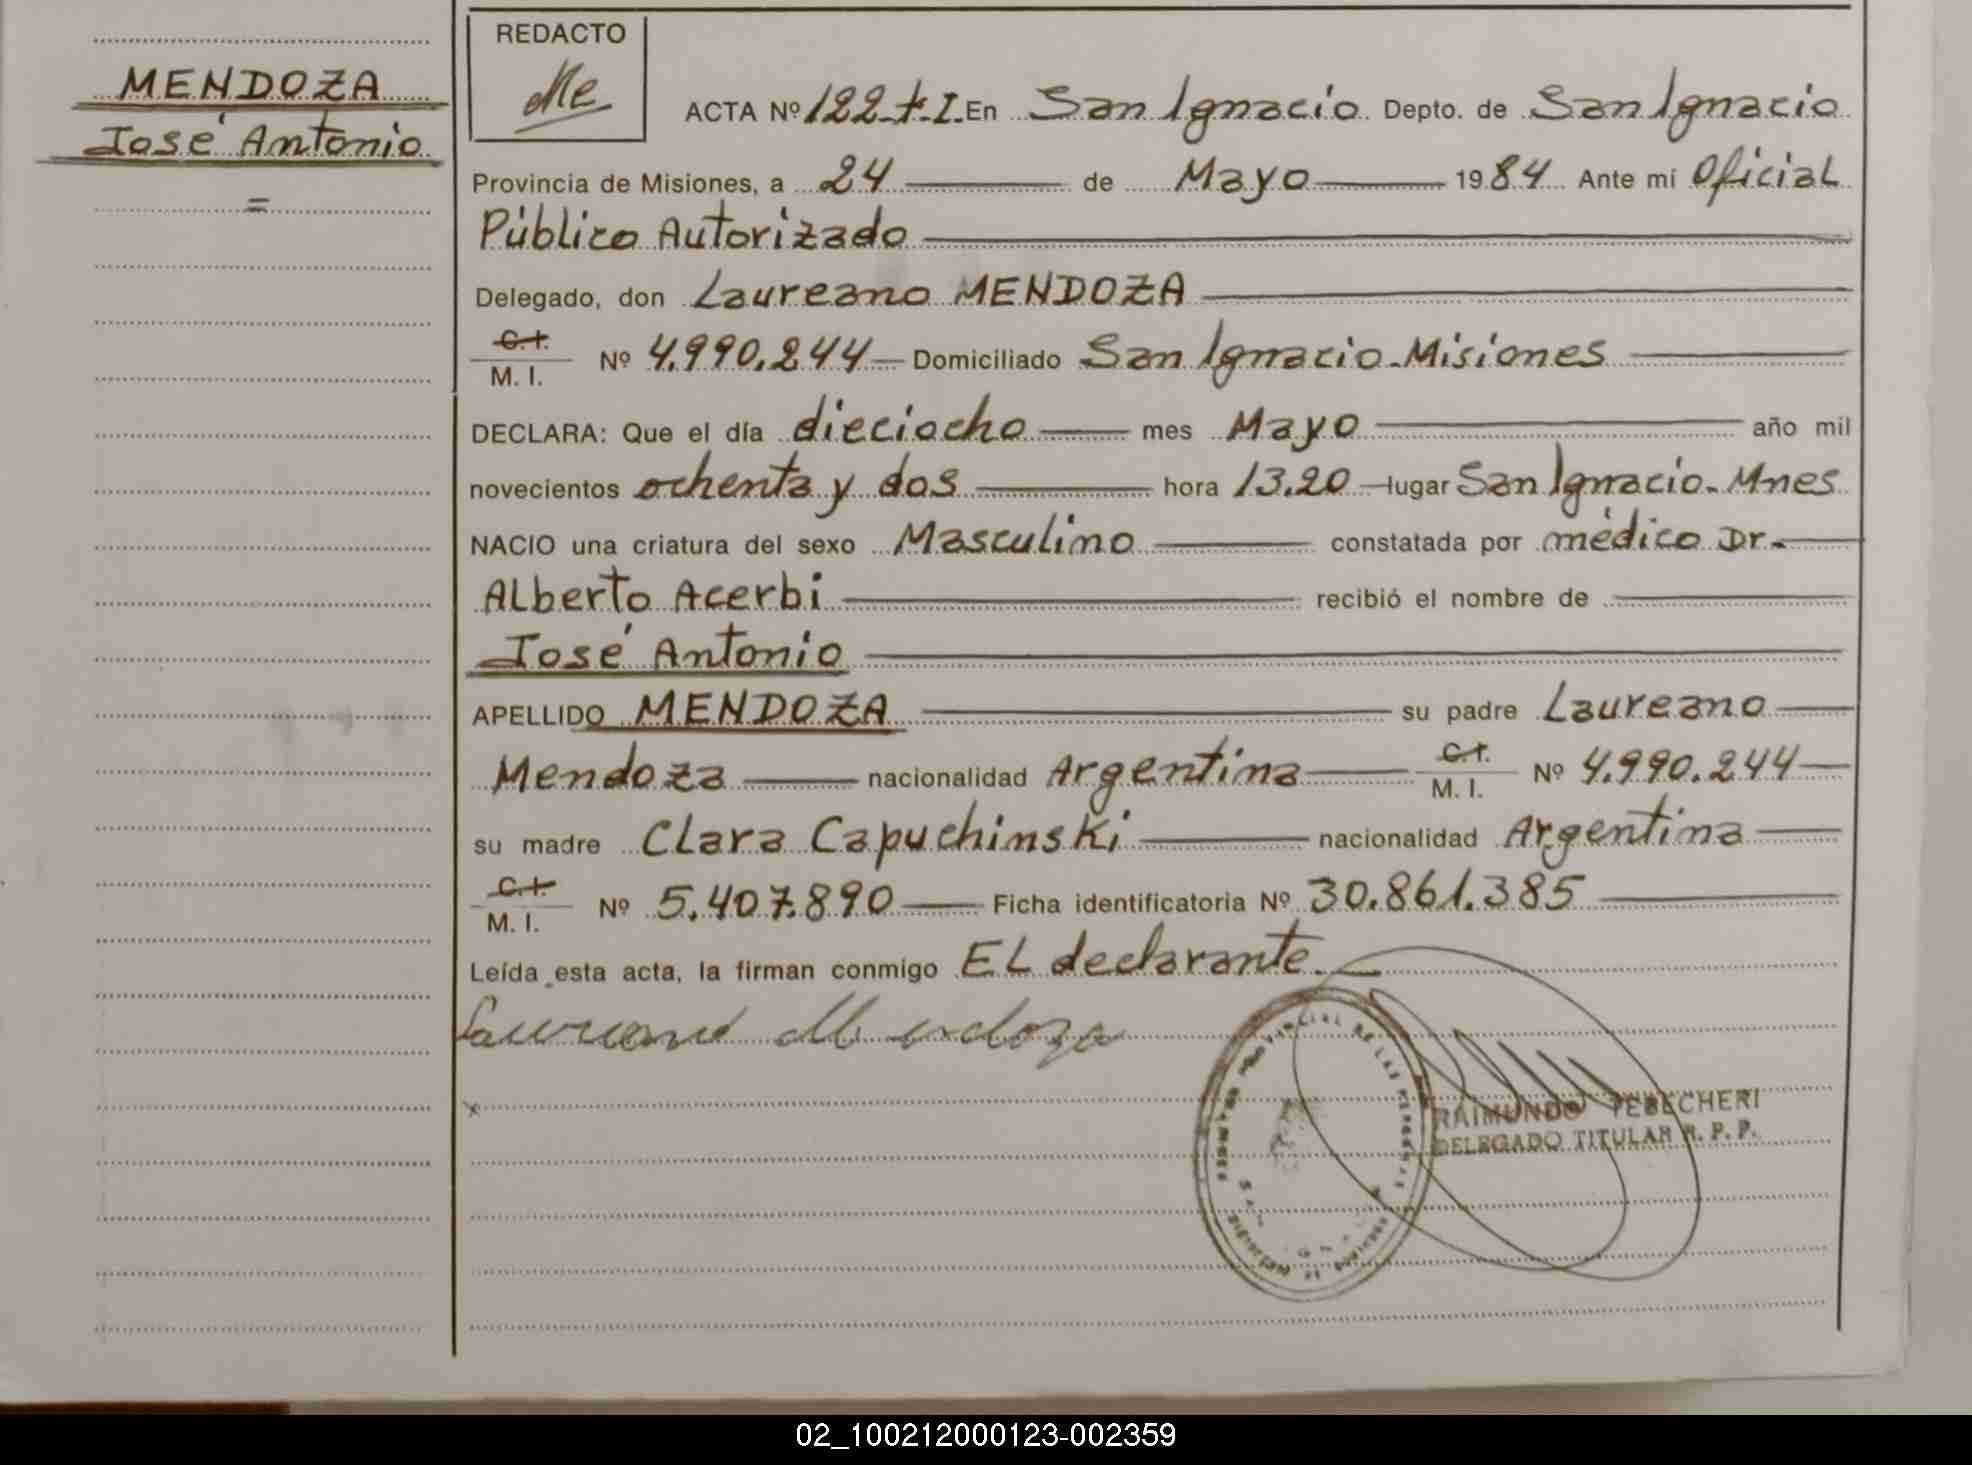 MENDOZA
José Antonio
=
REDACTO
ACTA Nº 122-t-I. En San Ignacio Depto. de San Ignacio
Provincia de Misiones, a 24 de Mayo 1984 Ante mí Oficial
Público Autorizado
Delegado, don Laureano MENDOZA
C.I.
M. I. Nº 4.990.244 Domiciliado San Ignacio-Misiones
DECLARA: Que el día dieciocho mes Mayo año mil
novecientos ochenta y dos hora 13.20 lugar San Ignacio-Mnes
NACIO una criatura del sexo Masculino constatada por médico Dr.
Alberto Acerbi recibió el nombre de
José Antonio
APELLIDO MENDOZA su padre Laureano
Mendoza nacionalidad Argentina C.I. M. I. Nº 4.990.244
su madre Clara Capuchinski nacionalidad Argentina
C.I.
M. I. Nº 5.407.890 Ficha identificatoria Nº 30.861.385
Leída esta acta, la firman conmigo EL declarante.
Laureano Mendoza
PROVINCIAL DE LAS PERSONAS
RAIMUNDO TEBECHERI
DELEGADO TITULAR R. P. P.
02_100212000123-002359